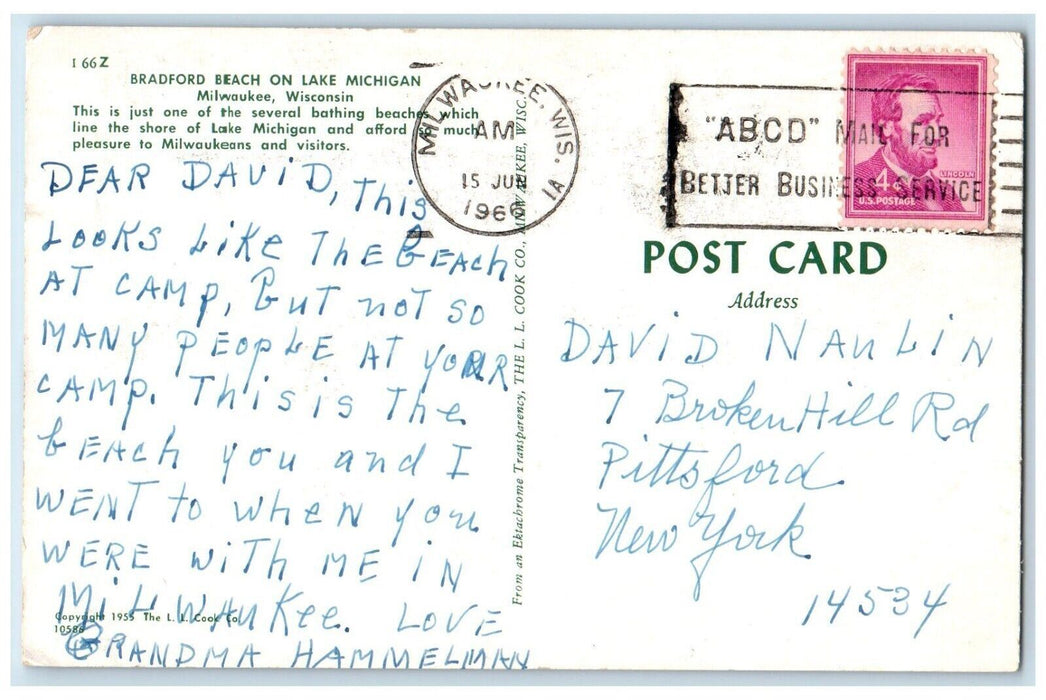 I 66 Z
BRADFORD BEACH ON LAKE MICHIGAN
Milwaukee, Wisconsin
This is just one of the several bathing beaches which
line the shore of Lake Michigan and afford so much
pleasure to Milwaukeans and visitors.
DEAR DAVID, This
LOOKS LIKE The BEACH
AT CAMP, BuT noT SO
MANY PEOPLE AT YOUR
CAMP. This is The
BEACH you and I
WENT to when you
WERE WITH ME IN
MILWAUKEE. LOVE
GRANDMA HAMMELMAN
Copyright 1955 The L. L. Cook Co.
10586
From an Ektachrome Transparency, THE L. L. COOK CO., MILWAUKEE, WISC.
MILWAUKEE, WIS.
AM
15 JUN
1966
1A
"ABCD" MAIL FOR
BETTER BUSINESS SERVICE
LINCOLN
4¢
U.S. POSTAGE
POST CARD
Address
DAVID NAULIN
7 Broken Hill Rd
Pittsford
New York
14534